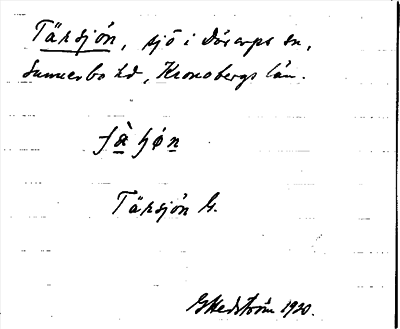 Täksjön, sjö i Dörarps sn,
Sunnerbo hd, Kronobergs län.
Täksjön G.
G Hedström 1920.